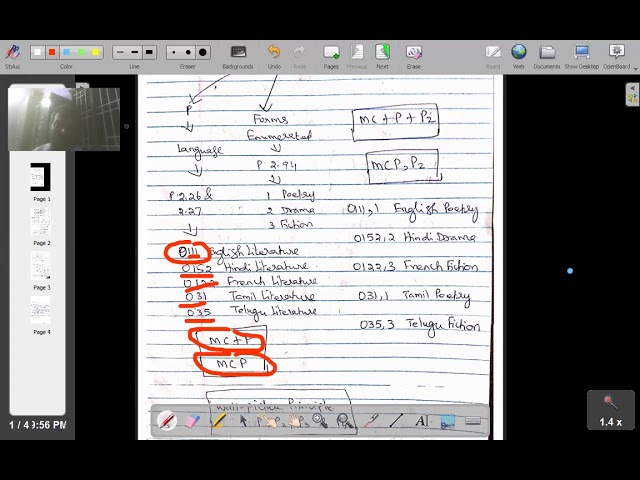 Stylus
Color
Line
Eraser
Backgrounds
Undo
Redo
Page
Previous
Next
Erase
Board
Web
Documents
Show Desktop
OpenBoard
Page 1
Page 2
Page 3
Page 4
1 / 4
9:56 PM
1.4 x
P
Language
P.2.26 &
2.27
0111 English Literature
0152 Hindi Literature
0122 French Literature
031 Tamil Literature
035 Telugu Literature
MC+P
MCP
Forms
Enumerated
P.2.94
1 Poetry
2 Drama
3 Fiction
MC+P+P2
MCP,P2
0111,1 English Poetry
0152,2 Hindi Drama
0122,3 French Fiction
031,1 Tamil Poetry
035,3 Telugu Fiction
Wall-picture Principle